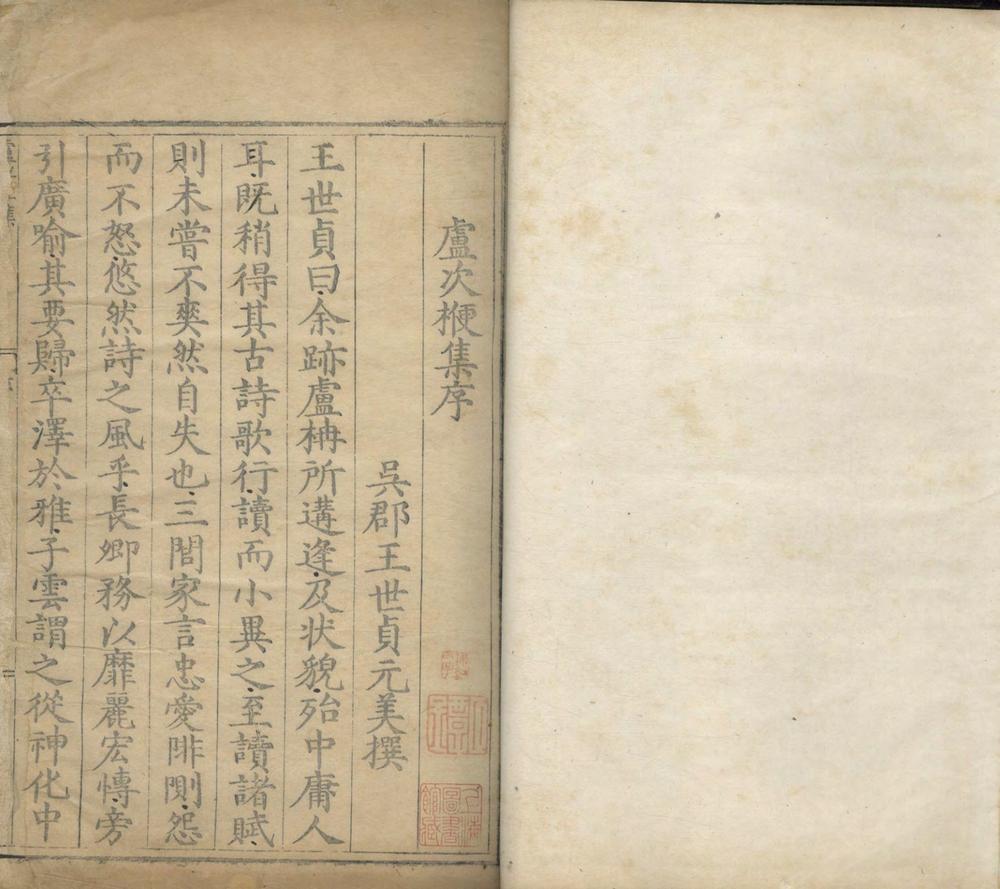 盧次楩集序
吳郡王世貞元美撰
王世貞曰余跡盧柟所遘逢及状貌殆中庸人
耳既稍得其古詩歌行讀而小異之至讀諸賦
則未嘗不爽然自失也三閭家言忠愛悱惻怨
而不怒悠然詩之風乎長卿務以靡麗宏慱旁
引廣喻其要歸卒澤於雅子雲謂之從神化中